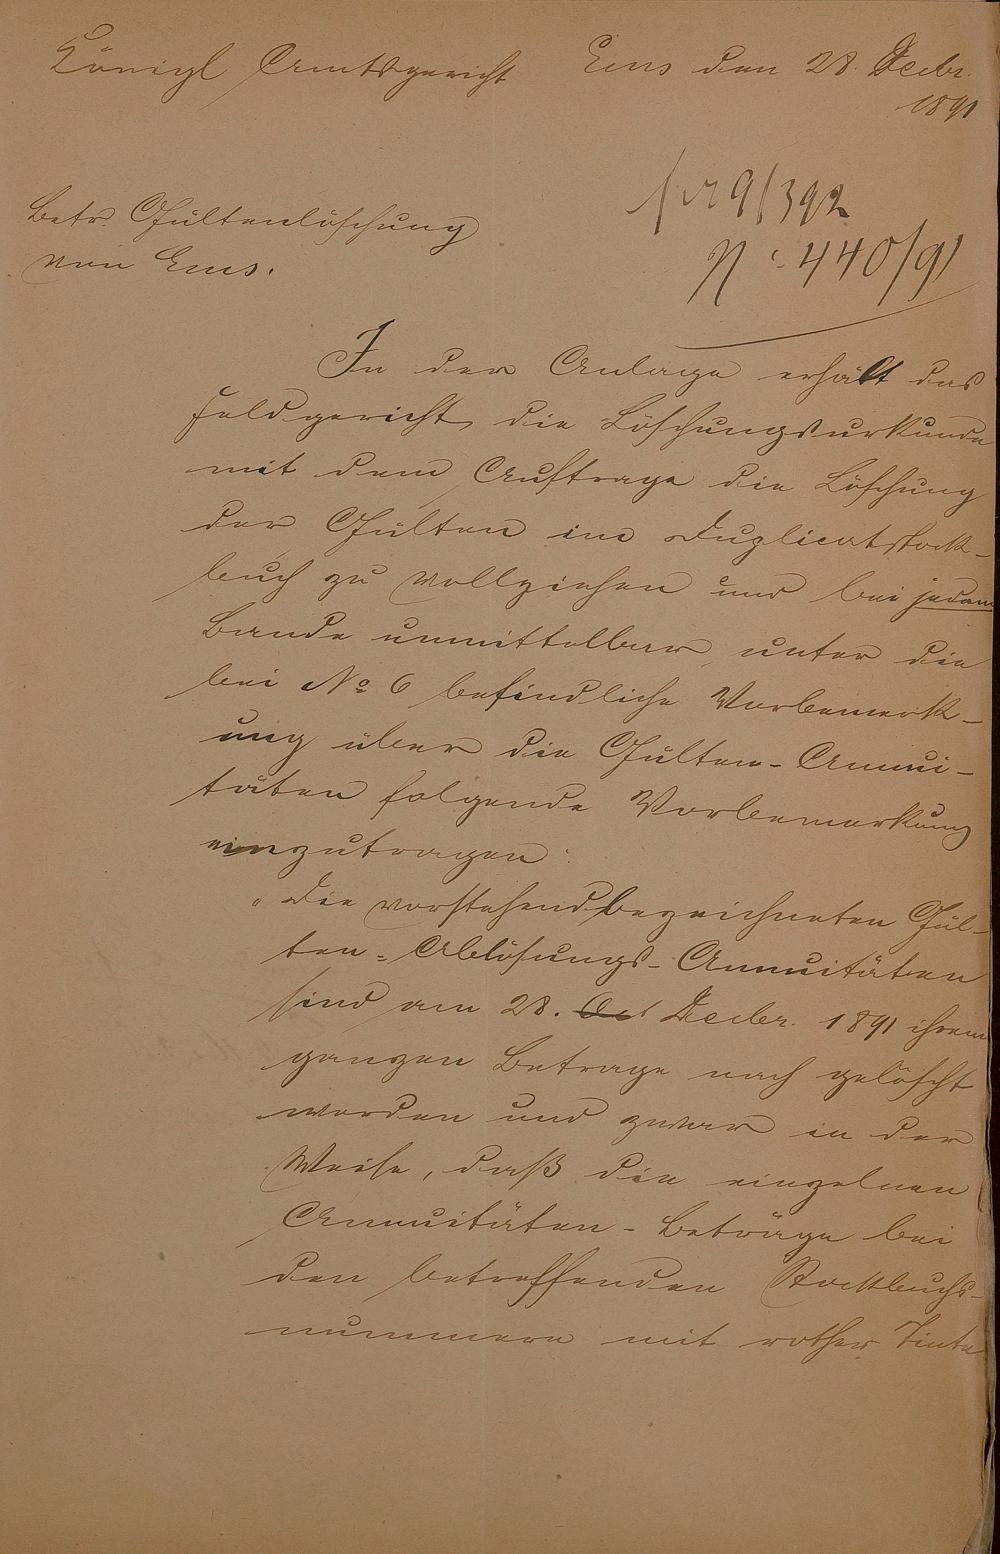 Königl Amtsgericht Ems den 28. Decbr.
1891
Betr. Gültenlöschung
von Ems.
9/392
N: 440/91
In der Anlage erhält das
Feldgericht die Löschungsurkunde
mit dem Auftrage die Löschung
der Gülten im Duplicatstock-
buch zu vollziehen und bei jedem
Bande unmittelbar unter die
bei No 6 befindliche Vorbemerk-
ung über die Gülten-Annui-
täten folgende Vorbemerkung
einzutragen:
"Die vorstehend bezeichneten Gül-
ten-Ablösungs-Annuitäten
sind am 28. Oct Decbr. 1891 ihrem
ganzen Betrage nach gelöscht
worden und zwar in der
Weise, daß die einzelnen
Annuitäten-Beträge bei
den betreffenden Stockbuchs-
nummern mit rother Tinte